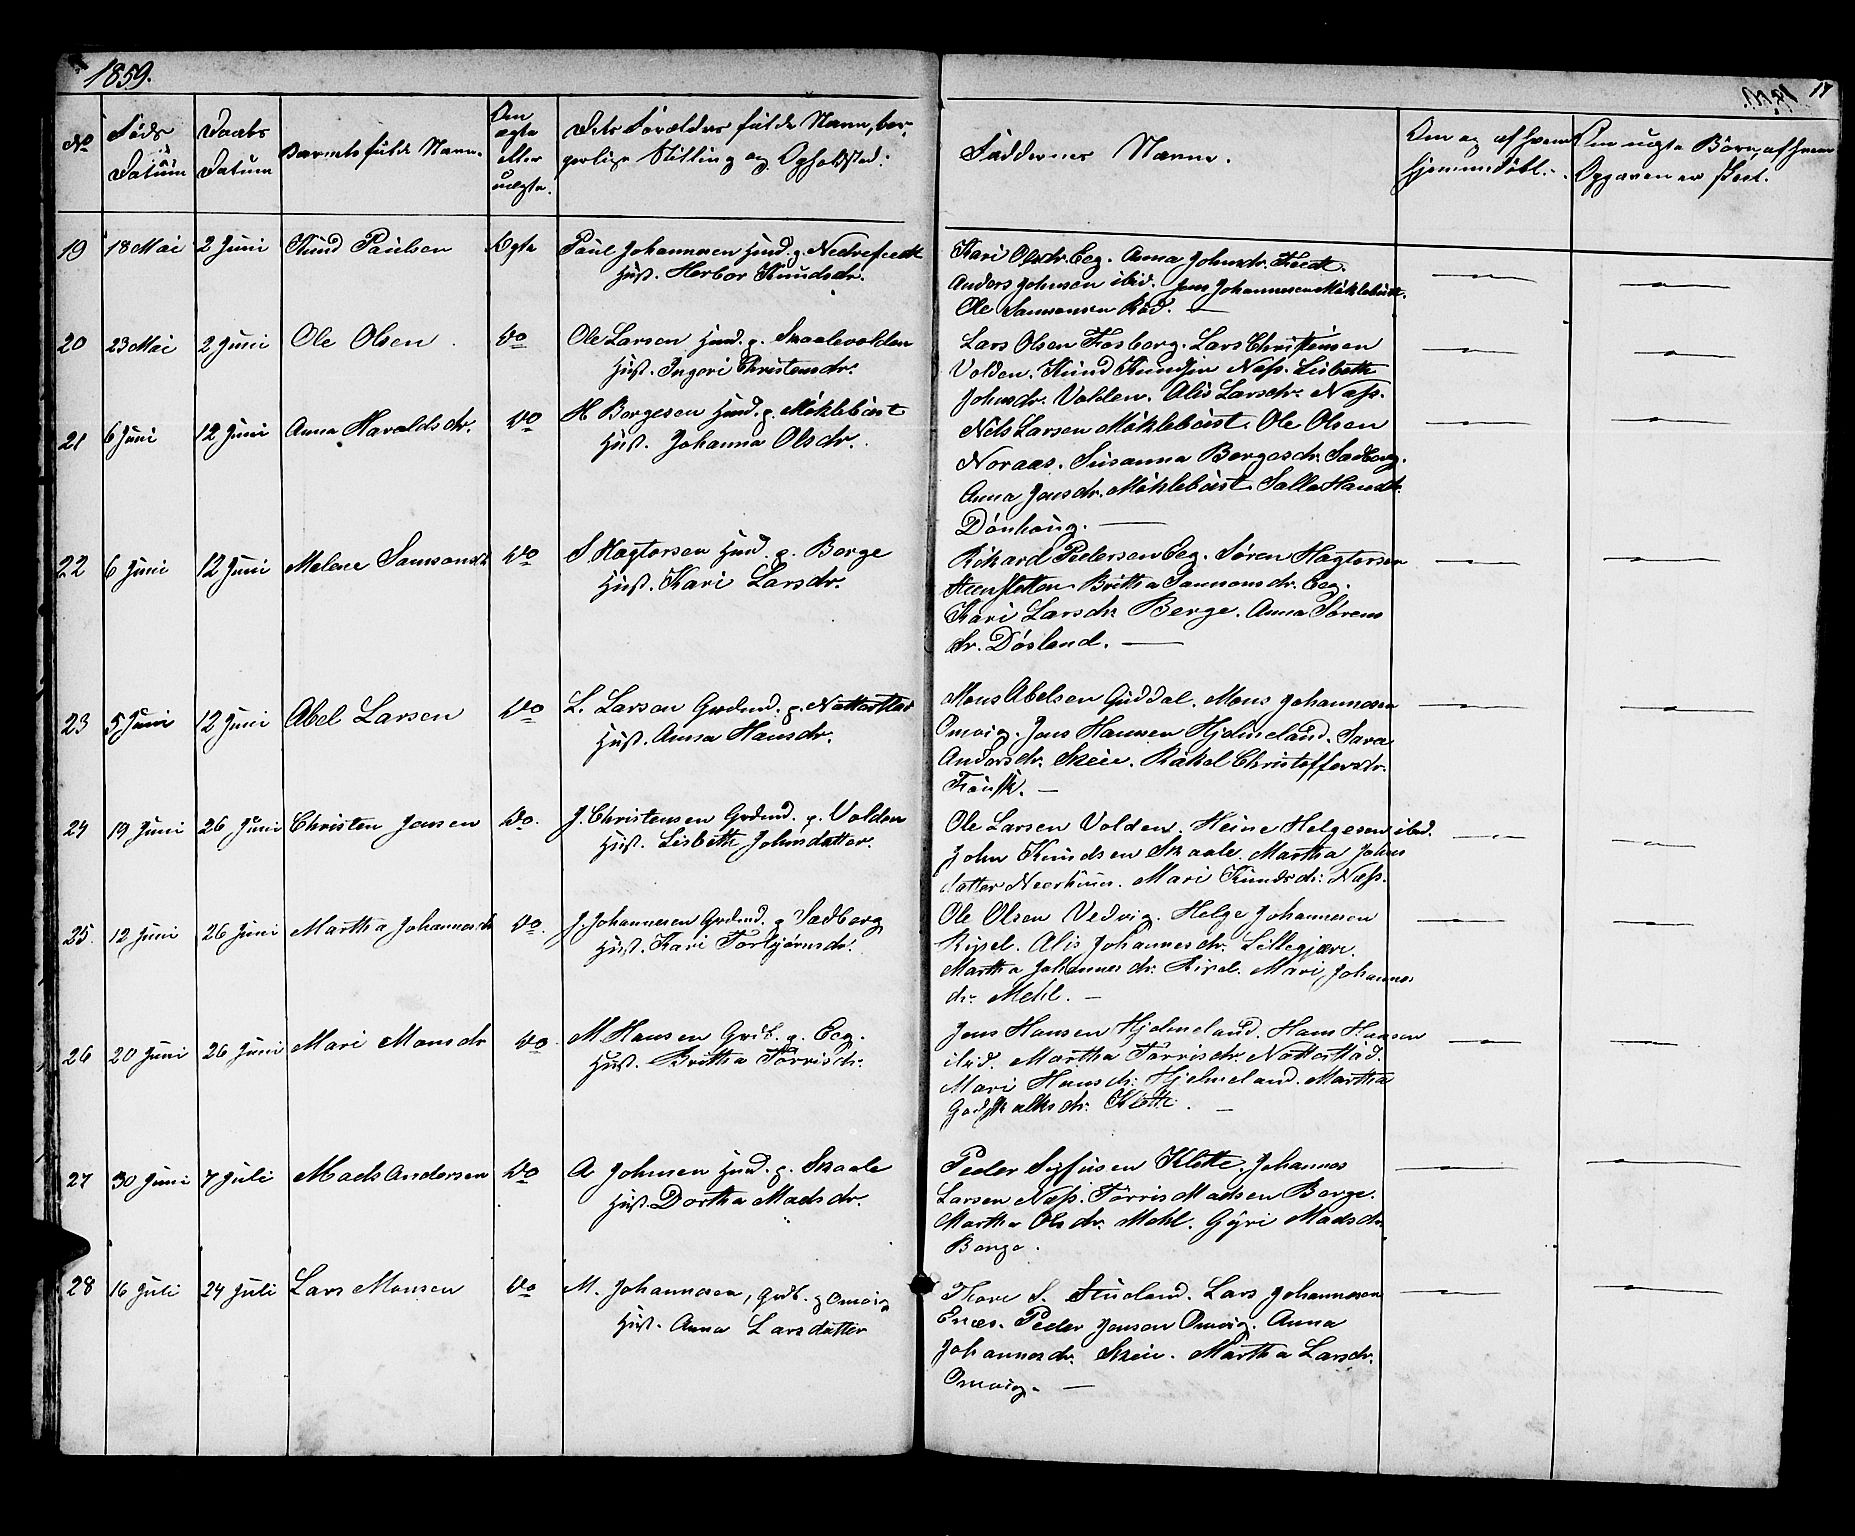 1859.
17
No
Føds Datum
Daabs Datum
Barnets fulde Navn.
Om ægte eller uægte.
Dets Forældres fulde Navn, bor-
gerlige Stilling og Opholdsted.
Faddernes Navne.
Om og af hvem
hjemmedøbt.
Om uægte Børn, af hvem
Opgaven er skeet.
19 18 Mai 2 Juni Knud Paulsen Ægte Paul Johannesen Huusd. g. Nedrefiedt
Hust. Herbor Knudsdr.
Kari Olsdr. Eeg. Anna Johnsdr. Fiedt.
Anders Johnsen ibid. Jens Johannesen Møklebust.
Ole Samsonsen Rød. —
20 23 Mai 2 Juni Ole Olsen Do Ole Larsen Huusd. g. Skaalevolden
Hust. Ingeri Christensdr.
Lars Olsen Fosberg. Lars Christensen
Volden. Knud Knudsen Næss. Lisbeth
Johnsdr. Volden. Alis Larsdr. Næss.
21 6 Juni 12 Juni Anna Haraldsdr. Do H Børgesen Huusd. g. Møklebust
Hust. Johanna Olsdr.
Nils Larsen Møklebust. Ole Olsen
Noraas. Susanna Børgesdr. Sædberg.
Anna Jensdr. Møklebust.
Dønhaug. —
22 6 Juni 12 Juni Malene Samsonsdr Do S Hagtorsen Huusd. g. Berge
Hust. Kari Larsdr.
Rikard Pedersen Eeg. Søren Hagtorsen
Britha Samsonsdr. Eeg.
Kari Larsdr. Berge. Anna Sørens
dr. Døsland. —
23 5 Juni 12 Juni Abel Larsen Do L. Larsen Grdmd. g. Nattestad
Hust. Anna Hansdr.
Mons Abelsen Guddal. Mons Johannesen
Omvig. Jens Hansen Hjelmeland. Sara
Andersdr. Skeie. Rakel Christoffersdr.
—
24 19 Juni 26 Juni Christen Jensen Do. J. Christensen Grdmd. g. Volden
Hust. Lisbeth Johnsdatter.
Ole Larsen Volden. Heine Helgesen ibid.
John Knudsen Skaale. Martha Johns
datter Neerhuus. Mari Knudsdr. Næss.
25. 12 Juni 26 Juni Martha Johannesdr Do. J. Johannesen Grdmd. g Sædberg
Hust. Kari Torbjørnsdr.
Ole Olsen Vedvig. Helge Johannesen
Ripel. Alis Johannesdr. Lillegjære.
Martha Johannesdr. Ripel. Mari Johannes
dr. Mehl. —
26 20 Juni 26 Juni Mari Monsdr Do M Hansen Grdb. g. Eeg.
Hust. Britha Tørrisdr.
Jens Hansen Hjelmeland. Hans Hansen
ibid. Martha Tørrisdr. Nattestad.
Mari Hansdr. Hjelmeland. Martha
Godskalksdr. Kløtte. —
27 30 Juni 7 Juli Mads Andersen Do A Johnsen Huusd. g. Skaale
Hust. Dortha Madsdr.
Peder Sjfusen Kløtte. Johannes
Larsen Næss. Tørris Madsen Berge.
Martha Olsdr. Mehl. Gyri Madsdr.
Berge.
28 16 Juli 24 Juli Lars Monsen Do M. Johannesen, Grdb. g Omvig
Hust. Anna Larsdatter
Thore S. Stueland. Lars Johannesen
Enæs. Peder Jensen Omvig. Anna
Johannesdr. Skeie. Martha Larsdr.
Omvig. —